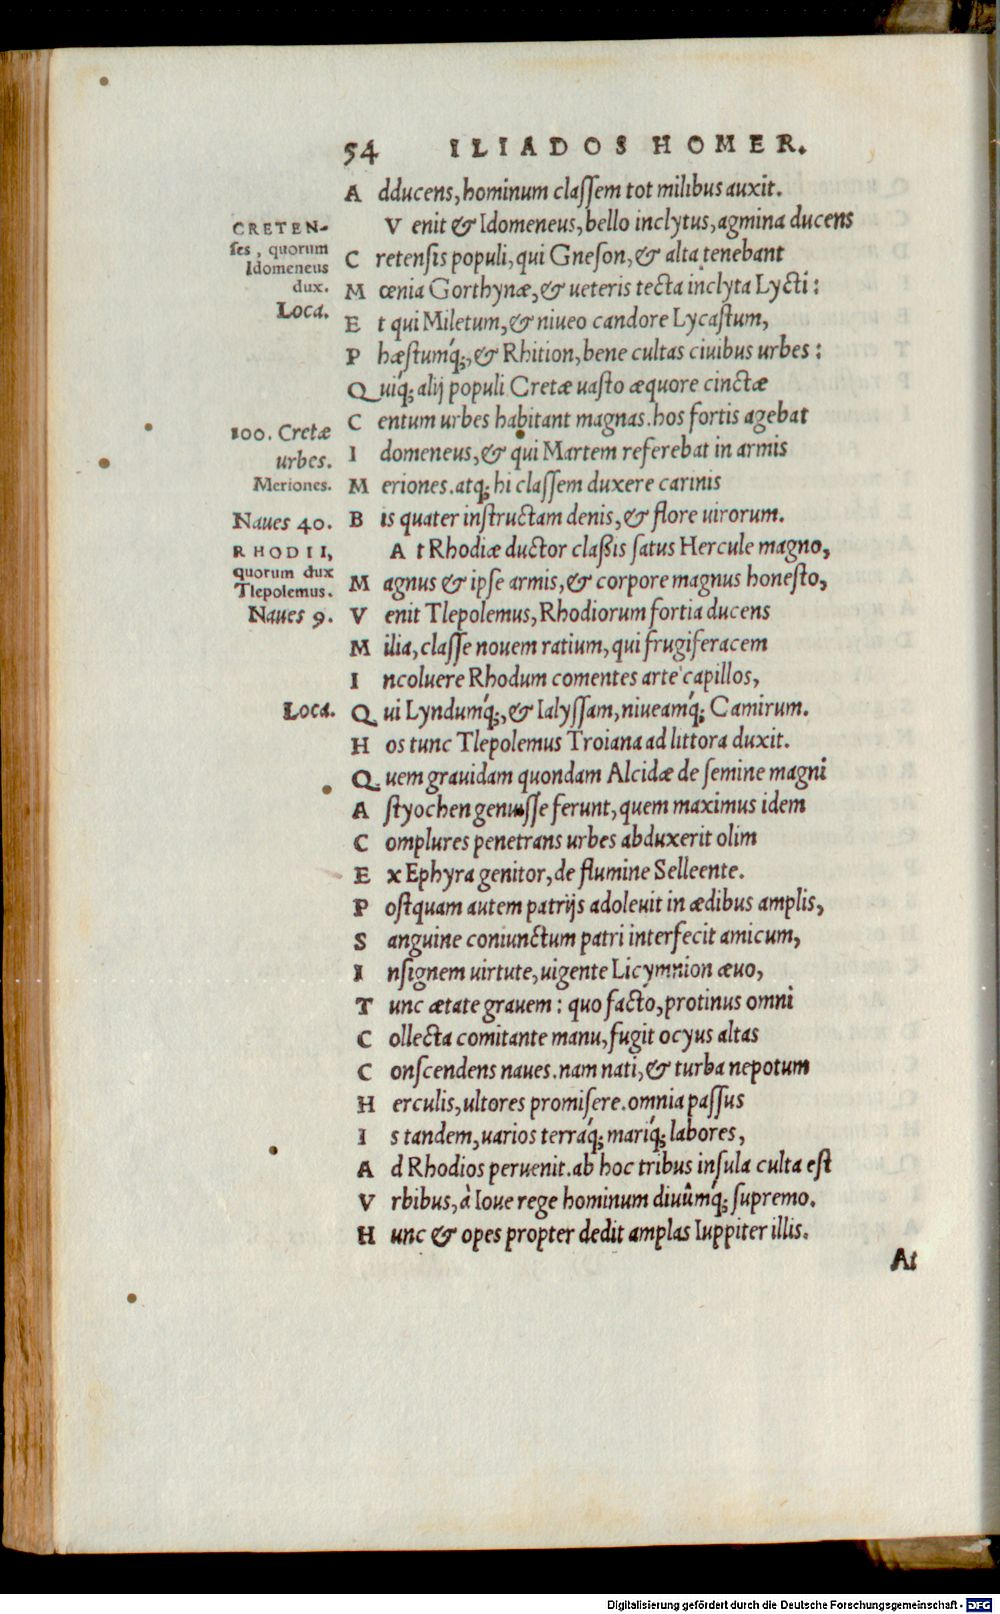 54 ILIADOS HOMER.
Adducens, hominum classem tot milibus auxit.
Venit & Idomeneus, bello inclytus, agmina ducens
CRETEN-
ses, quorum
Idomeneus
dux.
Loca.
Cretensis populi, qui Gneson, & alta tenebant
Mœnia Gorthynæ, & ueteris tecta inclyta Lycti:
Et qui Miletum, & niueo candore Lycastum,
Phæstumq́;, & Rhition, bene cultas ciuibus urbes:
Quiq́; alij populi Cretæ uasto æquore cinctæ
Centum urbes habitant magnas. hos fortis agebat
100. Cretæ
urbes.
Idomeneus, & qui Martem referebat in armis
Meriones.
Meriones. atq; hi classem duxere carinis
Naues 40.
Bis quater instructam denis, & flore uirorum.
RHODII,
quorum dux
Tlepolemus.
At Rhodiæ ductor claßis satus Hercule magno,
Magnus & ipse armis, & corpore magnus honesto,
Naues 9.
Venit Tlepolemus, Rhodiorum fortia ducens
Milia, classe nouem ratium, qui frugiferacem
Incoluere Rhodum comentes arte capillos,
Loca.
Qui Lyndumq́;, & Ialyssam, niueamq́; Camirum.
Hos tunc Tlepolemus Troiana ad littora duxit.
Quem grauidam quondam Alcidæ de semine magni
Astyochen genuisse ferunt, quem maximus idem
Complures penetrans urbes abduxerit olim
Ex Ephyra genitor, de flumine Selleente.
Postquam autem patrijs adoleuit in ædibus amplis,
Sanguine coniunctum patri interfecit amicum,
Insignem uirtute, uigente Licymnion æuo,
Tunc ætate grauem: quo facto, protinus omni
Collecta comitante manu, fugit ocyus altas
Conscendens naues. nam nati, & turba nepotum
Herculis, ultores promisere. omnia passus
Is tandem, uarios terraq́; mariq́; labores,
Ad Rhodios peruenit. ab hoc tribus insula culta est
Vrbibus, à Ioue rege hominum diuûmq́; supremo.
Hunc & opes propter dedit amplas Iuppiter illis.
At
Digitalisierung gefördert durch die Deutsche Forschungsgemeinschaft - DFG